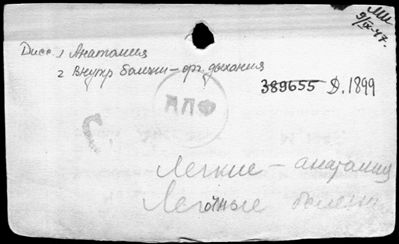 9/IX-47.
Дисс. 1 Анатомия
2 Внутр болезни – орг. дыхания
ППФ
389655 Д.1899
Легкие – анатомия
Легочные болезни